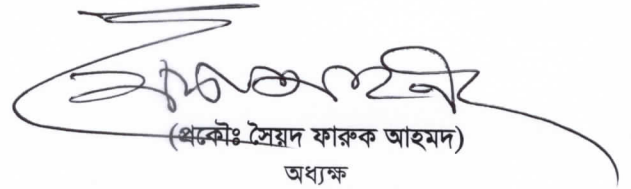 (প্রকৌঃ সৈয়দ ফারুক আহমদ)
অধ্যক্ষ